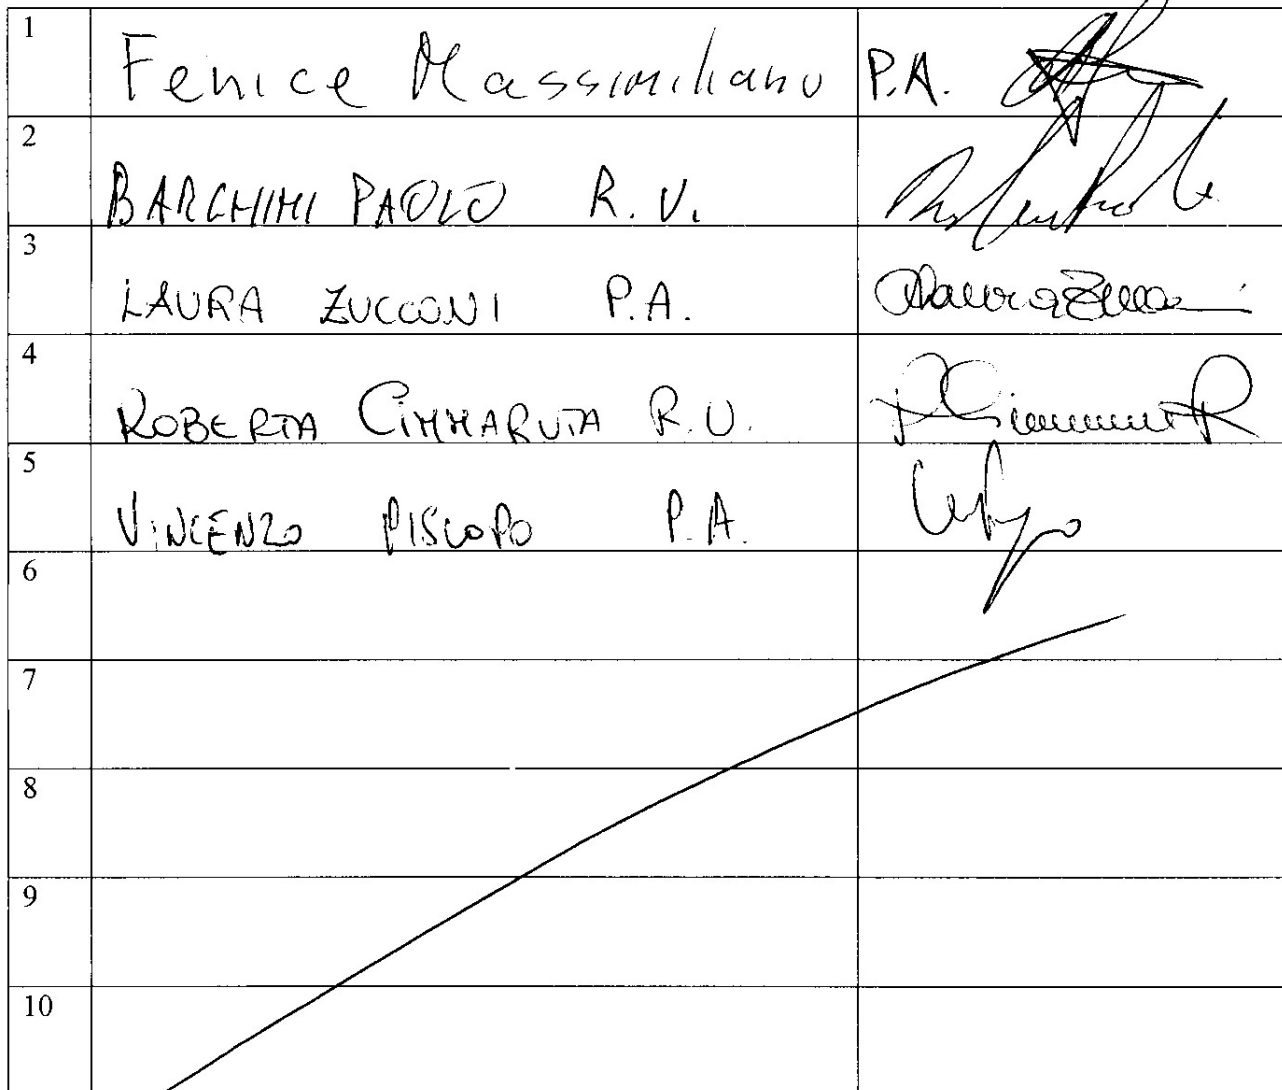 1 Fenice Massimiliano P.A.
2 BARCHINI PAOLO R.U.
3 LAURA ZUCCONI P.A.
4 ROBERTA CIMMARUTA R.U.
5 VINCENZO PISCOPO P.A.
6
7
8
9
10